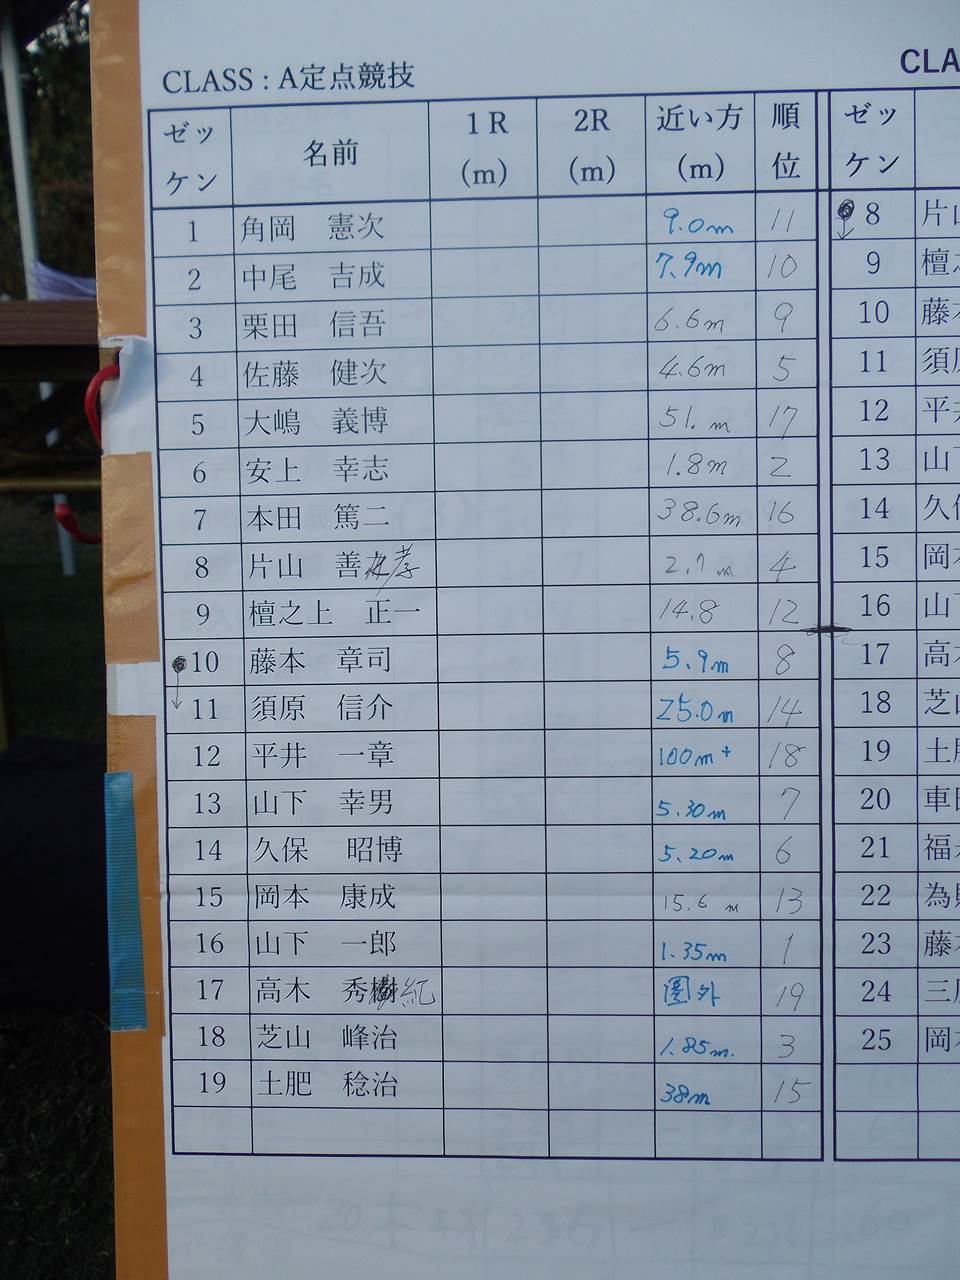 CLASS : A定点競技
CLA
ゼッケン 名前 1 R (m) 2R (m) 近い方 (m) 順位
1 角岡 憲次 9.0m 11
2 中尾 吉成 7.9m 10
3 栗田 信吾 6.6m 9
4 佐藤 健次 4.6m 5
5 大嶋 義博 51. m 17
6 安上 幸志 1.8m 2
7 本田 篤二 38.6m 16
8 片山 善孝 m 4
9 檀之上 正一 14.8 12
10 藤本 章司 5.9m 8
11 須原 信介 25.0m 14
12 平井 一章 100m+ 18
13 山下 幸男 5.30m 7
14 久保 昭博 5.20m 6
15 岡本 康成 15.6 m 13
16 山下 一郎 1.35m 1
17 高木 秀樹紀 圏外 19
18 芝山 峰治 1.85m. 3
19 土肥 稔治 38m 15
ゼッケン
8 片山
9 檀
10 藤本
11 須原
12 平井
13 山下
14 久保
15 岡本
16 山下
17 高木
18 芝山
19 土肥
20 車
21 福
22 為
23 藤本
24 三
25 岡